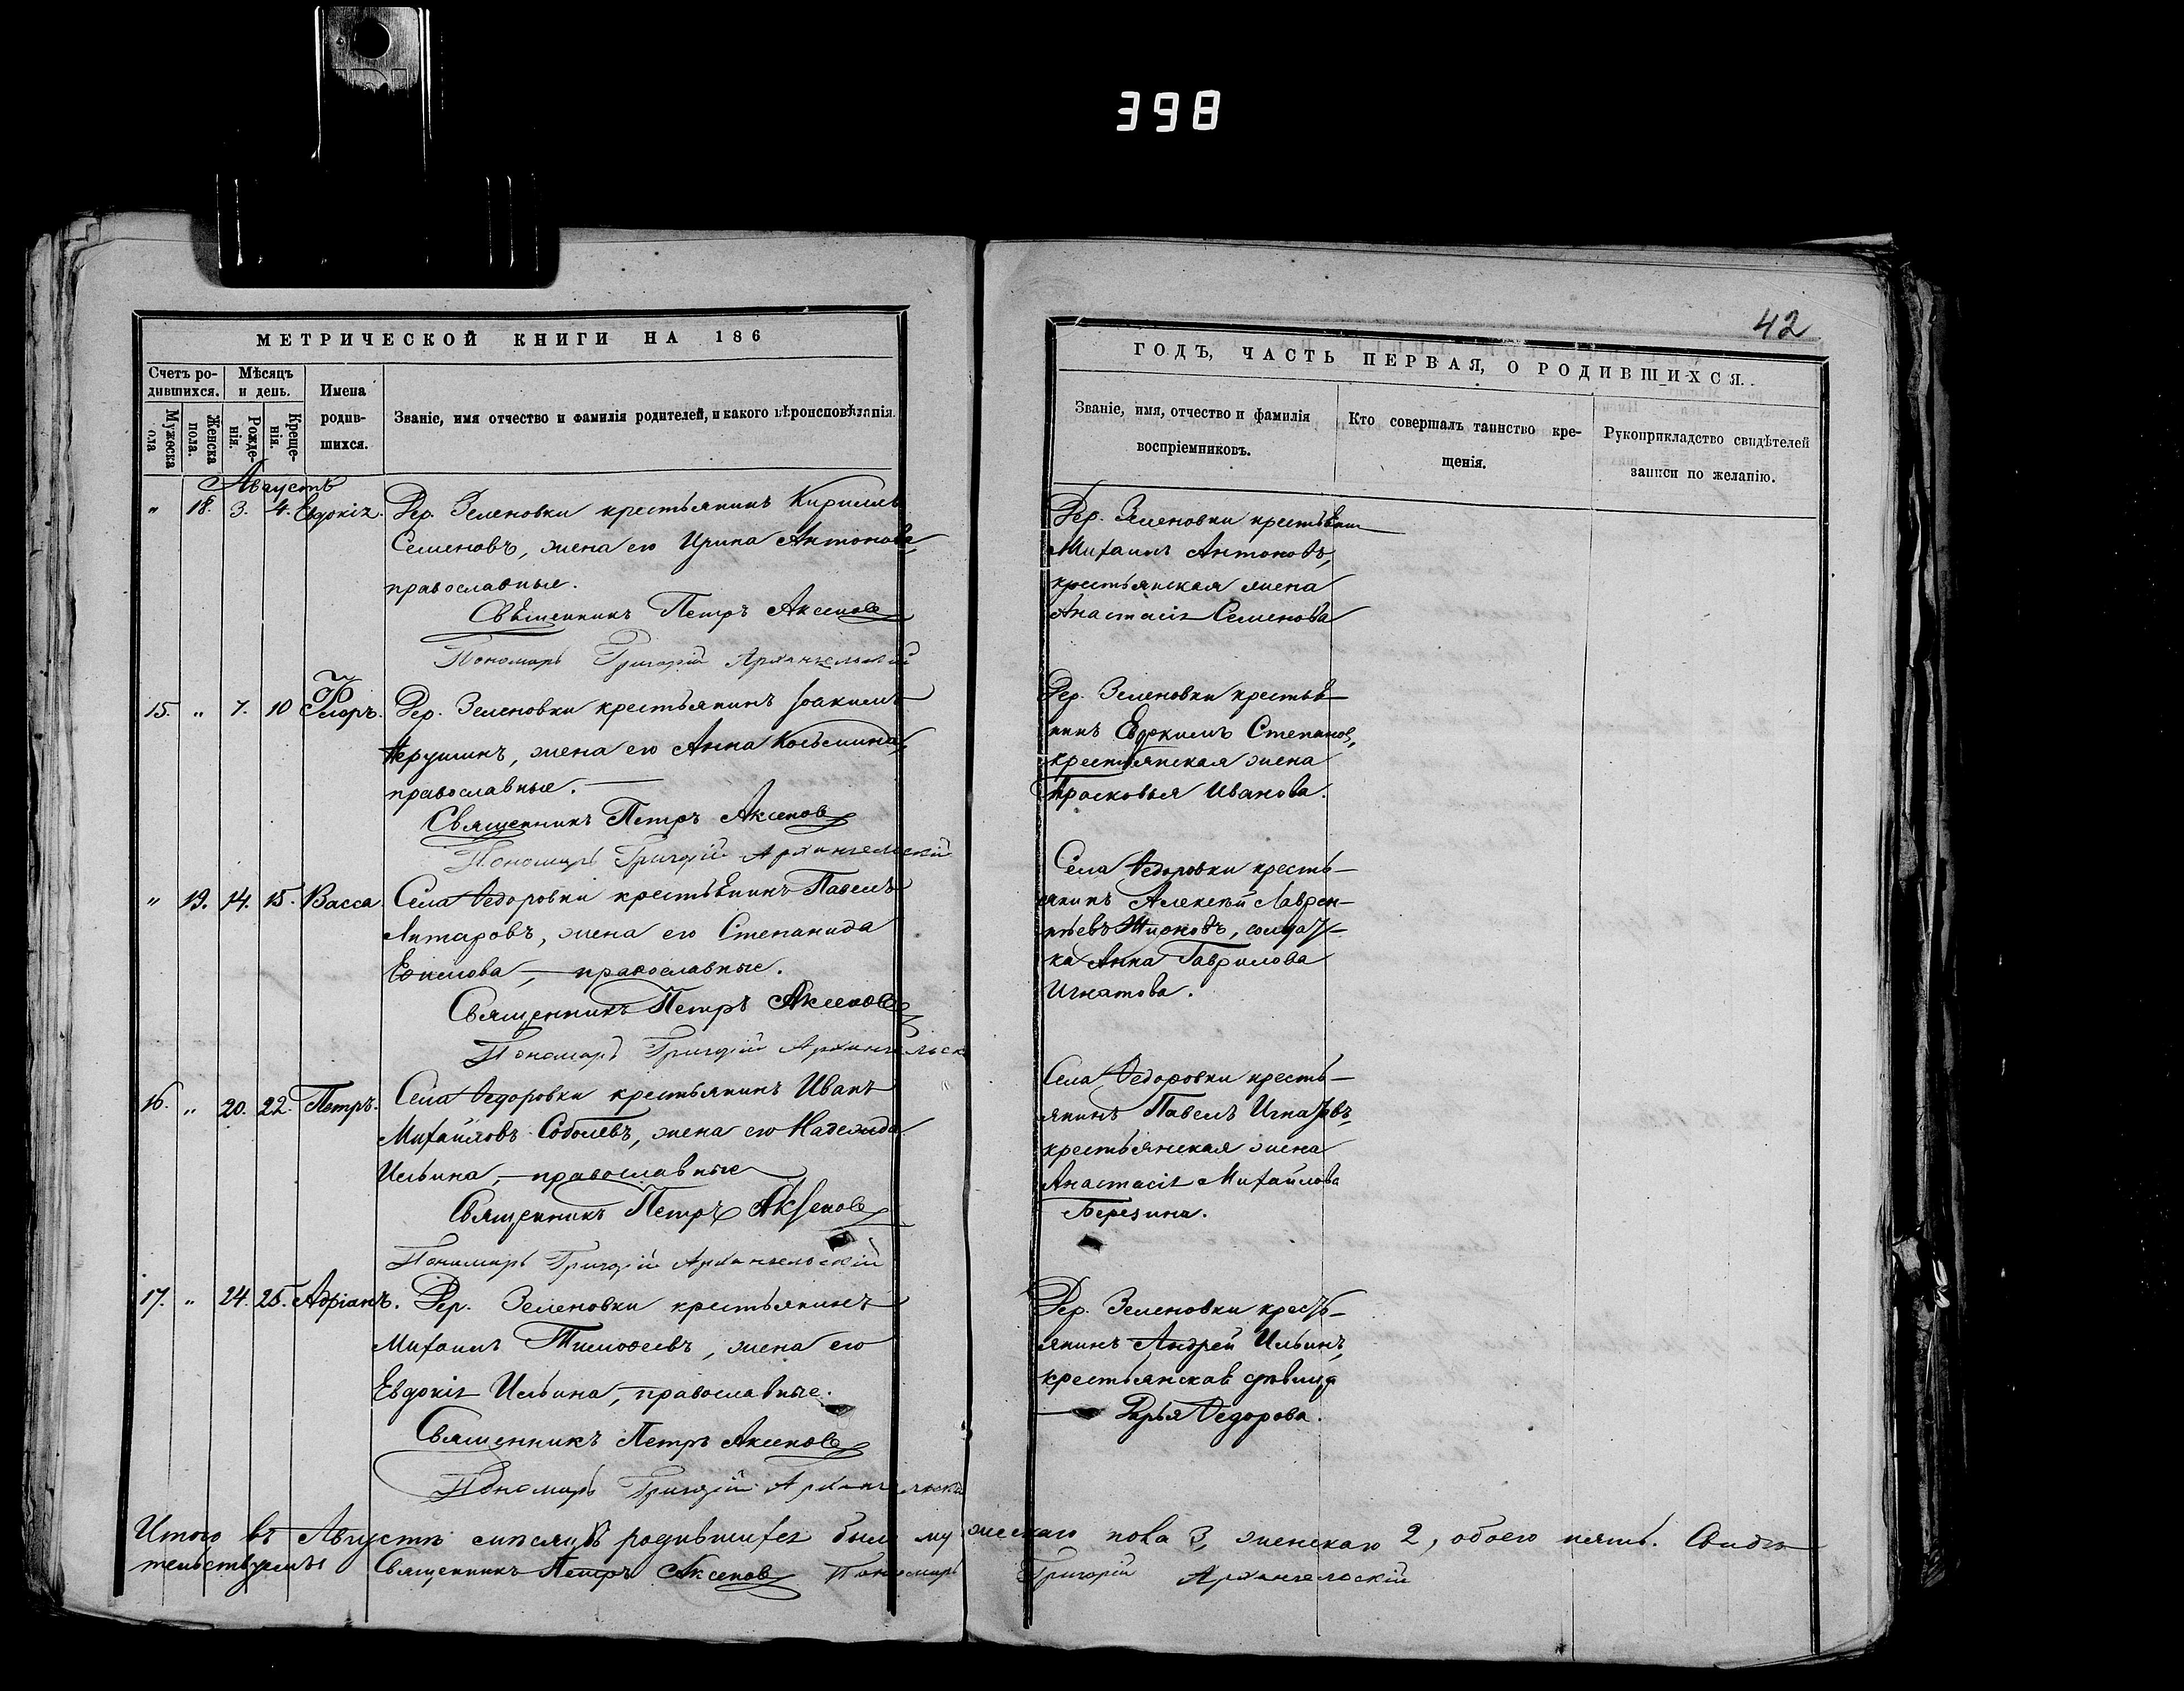 398
42
МЕТРИЧЕСКОЙ КНИГИ НА 186
Счетъ родившихся.
Мѣсяцъ и день.
Имена родившихся.
Званіе, имя отчество и фамилія родителей, и какого вѣроисповѣданія.
Мужеска пола
Женска пола.
Рожденія.
Крещенія.
Августъ
" 18. 3. 4. Евдокія. Дер. Зеленовки крестьянинъ Кириллъ
Семеновъ, жена его Ирина Антонова
православные.
Священникъ Петръ Аксеновъ
Пономарь Григорій Архангельскій
15. " 7. 10 Флоръ. Дер. Зеленовки крестьянинъ Іоакимъ
жена его Анна Козьмина,
православные.
Священникъ Петръ Аксеновъ
Пономарь Григорій Архангельскій
" 19. 14. 15. Васса Села Ѳедоровки крестьянинъ Павелъ
жена его Степанида
православные.
Священникъ Петръ Аксеновъ
Пономарь Григорій Архангельск
16. " 20. 22. Петръ. Села Ѳедоровки крестьянинъ Иванъ
Михайловъ Соболевъ, жена его Надежда
Ильина, православные
Священникъ Петръ Аксеновъ
Пономарь Григорій Архангельскій
17. " 24. 25. Адріанъ. Дер. Зеленовки крестьянинъ
Михаилъ Тимоѳеевъ, жена его
Евдокія Ильина, православные.
Священникъ Петръ Аксеновъ
Пономарь Григорій Архангельскій
ГОДЪ, ЧАСТЬ ПЕРВАЯ, О РОДИВШИХСЯ.
Званіе, имя, отчество и фамилія воспріемниковъ.
Кто совершалъ таинство крещенія.
Рукоприкладство свидѣтелей записи по желанію.
Дер. Зеленовки крестьянинъ
Михаилъ Антоновъ,
крестьянская жена
Анастасія Семенова
Дер. Зеленовки крестья-
нинъ Евдокимъ Степановъ,
крестьянская жена
Прасковья Иванова.
Села Ѳедоровки кресть-
янинъ Алексѣй Лаврен-
тьевъ солдат-
ка Анна Гаврилова
Игнатова.
Села Ѳедоровки кресть-
янинъ Павелъ Игнатовъ,
крестьянская жена
Анастасія Михайлова
Березина.
Дер. Зеленовки кресть-
янинъ Андрей Ильинъ,
крестьянская дѣвица
Дарья Ѳедорова.
Итого въ Августѣ мѣсяцѣ родившихся было мужескаго пола 3, женскаго 2, обоего пять. Свидѣ-
тельствуемъ: Священникъ Петръ Аксеновъ Пономарь Григорій Архангельскій